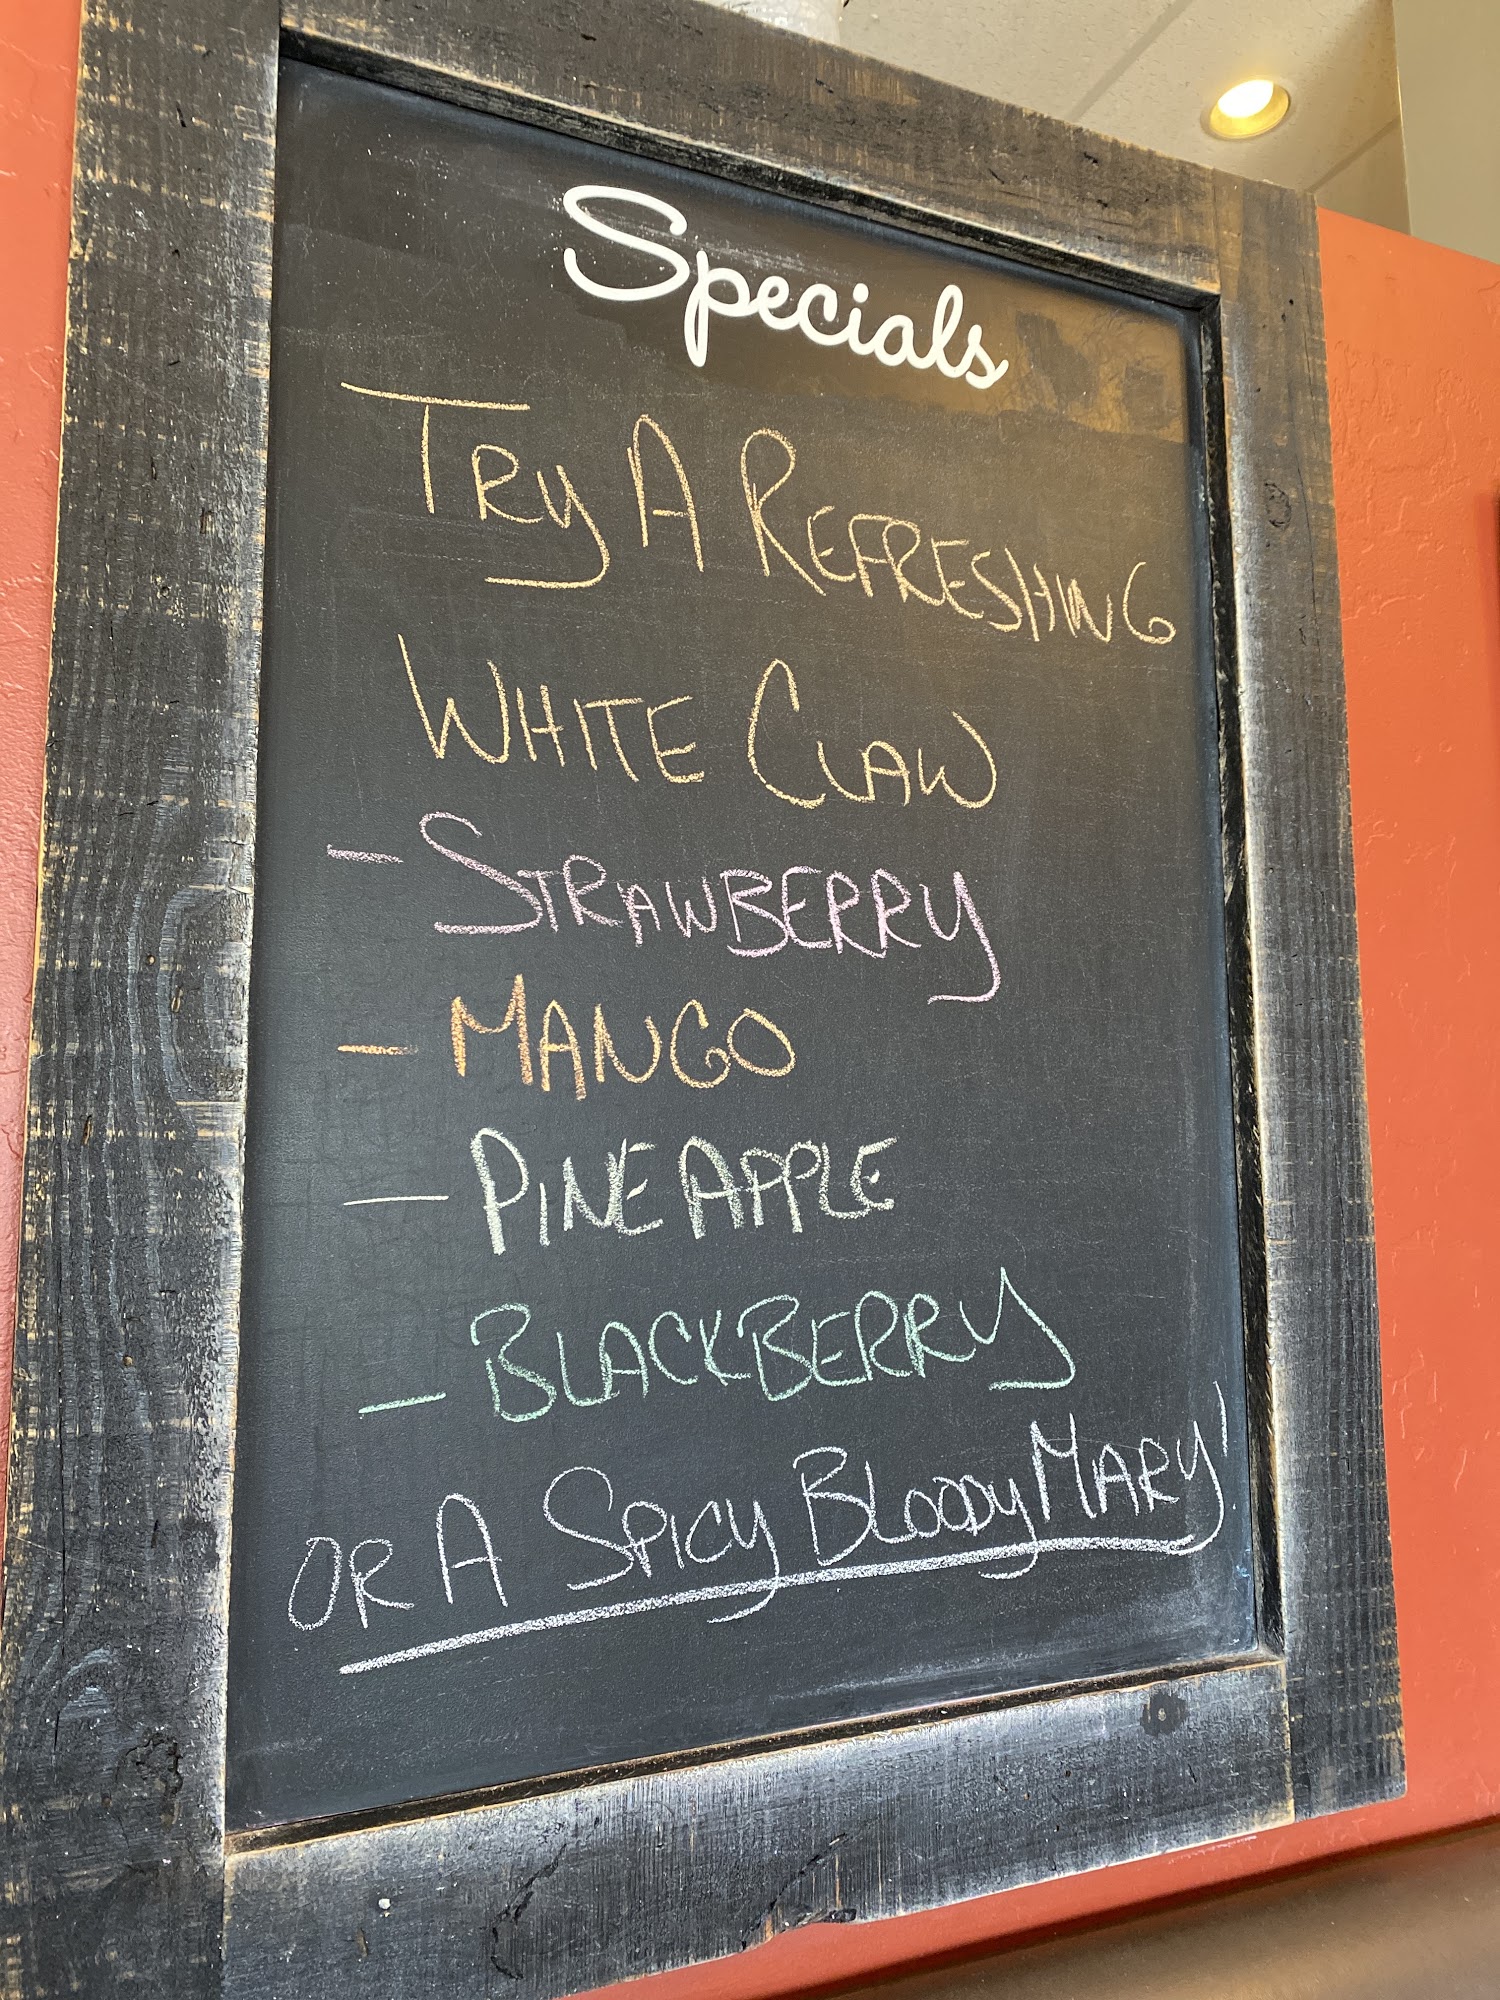 Specials
TRY A REFRESHING
WHITE CLAW
- STRAWBERRY
- MANGO
- PINEAPPLE
- BLACKBERRY
OR A SPICY BLOODY MARY!